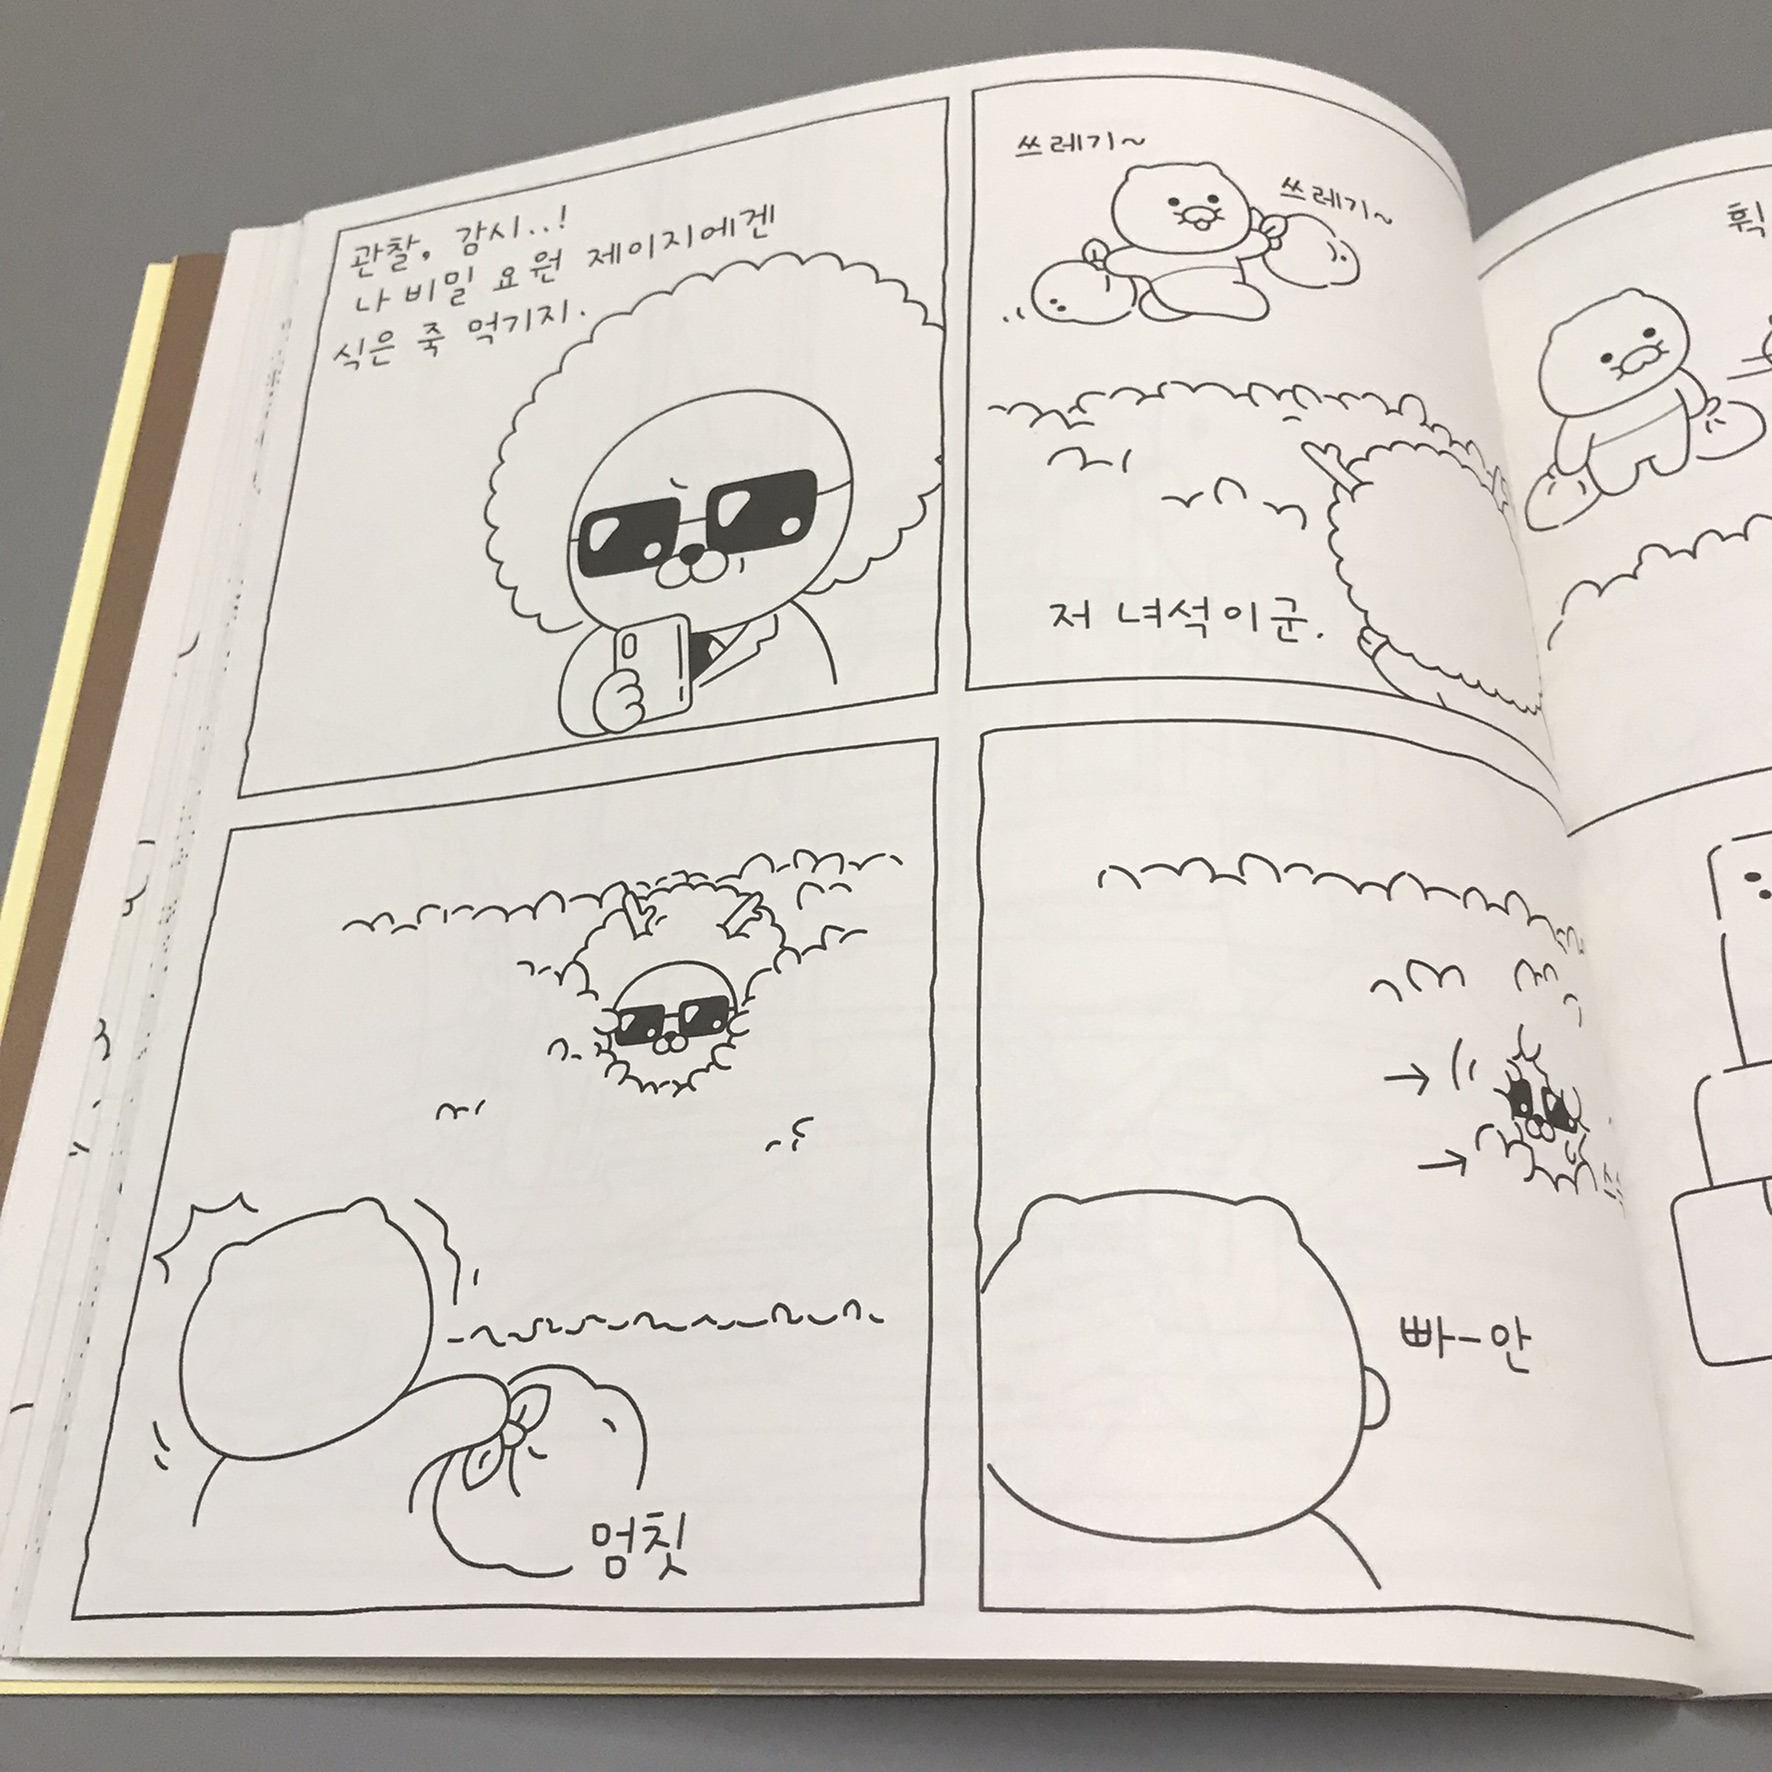 관찰, 감시..!
나 비밀 요원 제이지에겐
식은 죽 먹기지.
쓰레기~
쓰레기~
저 녀석이군.
멈칫
빠-안
휙